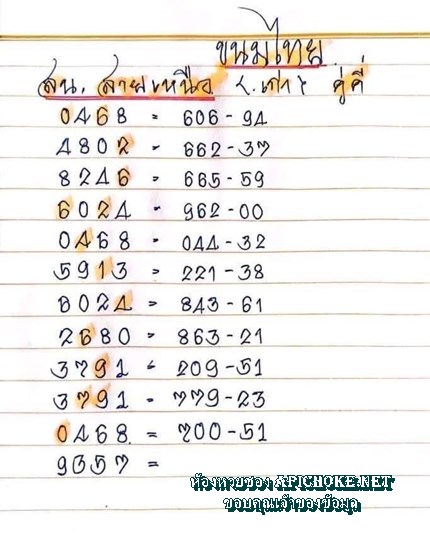 ขนมไทย
สน. สายเหนือ (เก่า) คู่คี่
0468 = 606-94
4802 = 662-37
8246 = 665-59
6024 = 962-00
0468 = 044-32
5913 = 221-38
8024 = 843-61
2680 = 863-21
3791 = 209-51
3791 = 779-23
0468 = 700-51
9357 =
ห้องหวยซอง APICHOKE.NET
ขอบคุณเจ้าของข้อมูล